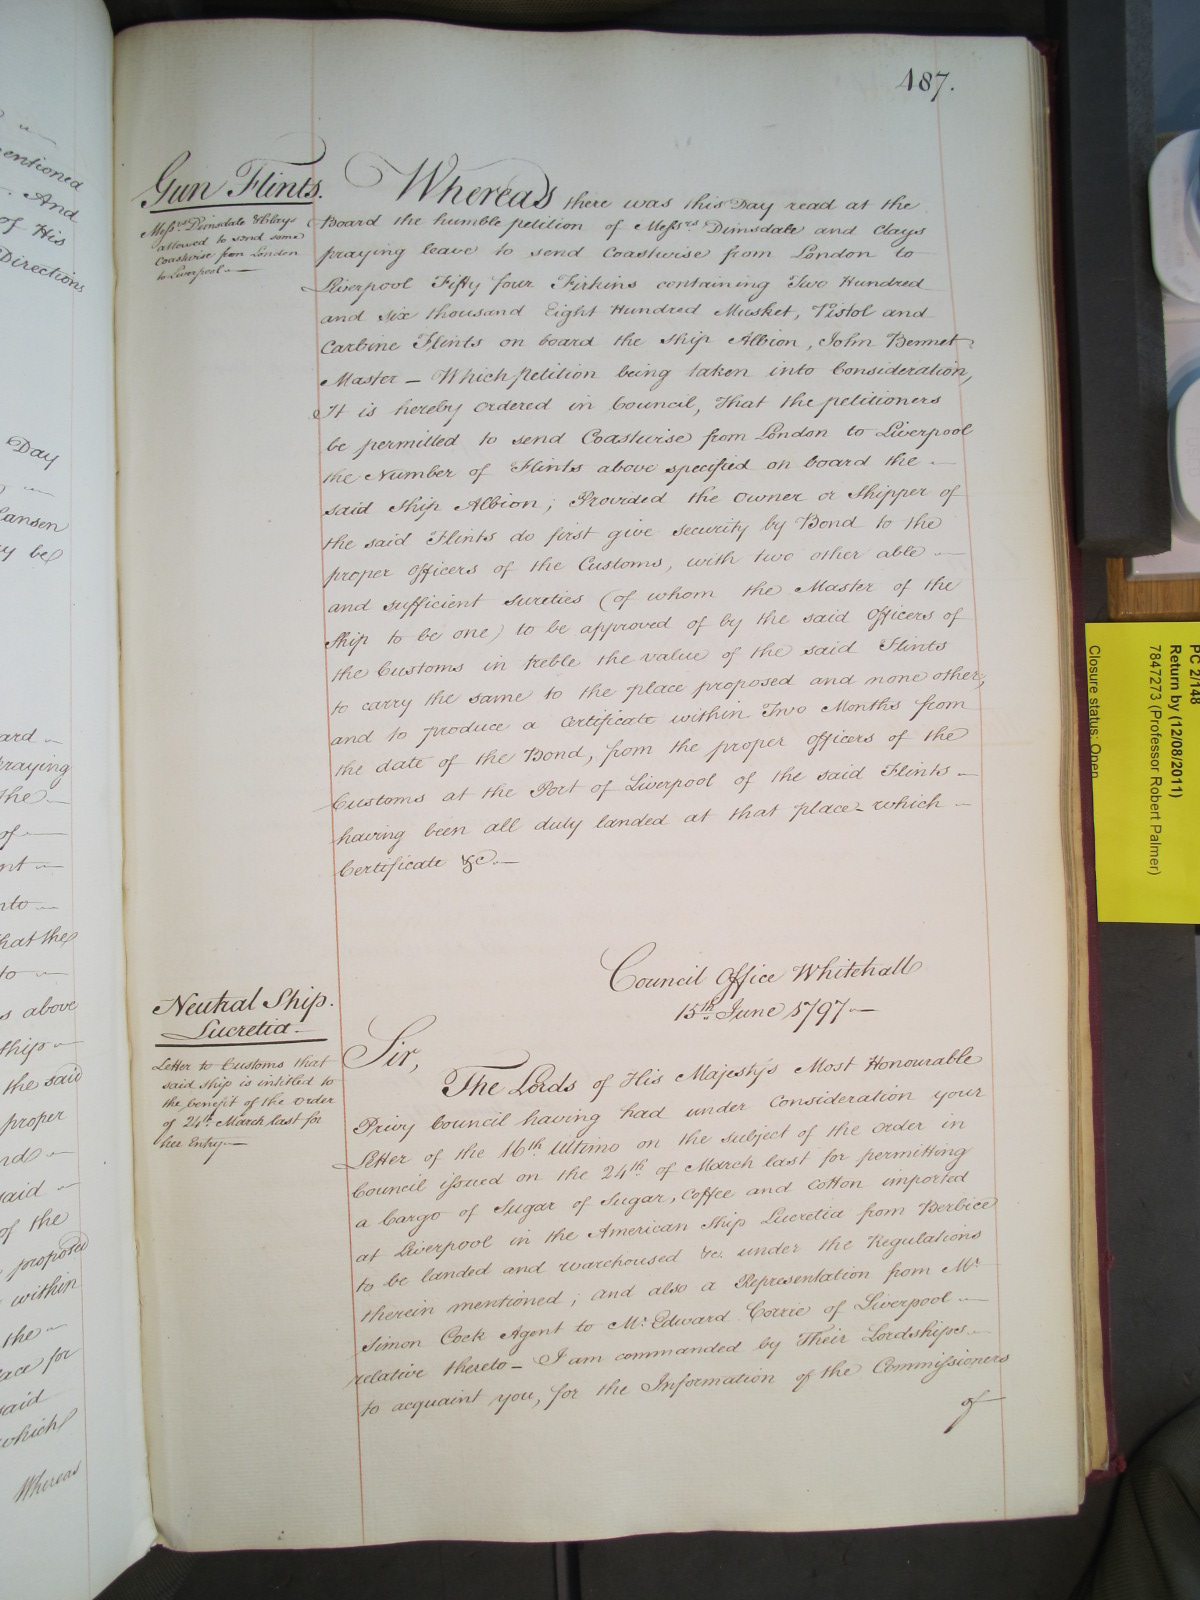 487.
Gun Flints.
Messrs. Dimsdale & Clays
allowed to send some
Coastwise from London
to Liverpool.—
Whereas there was this Day read at the
Board the humble petition of Messrs Dimsdale and Clays
praying leave to send Coastwise from London to
Liverpool Fifty four Firkins containing Two Hundred
and six thousand Eight Hundred Musket, Pistol and
Carbine Flints on board the ship Albion, John Bennet
Master — Which petition being taken into Consideration,
It is hereby ordered in Council, That the petitioners
be permitted to send Coastwise from London to Liverpool
the Number of Flints above specified on board the —
said Ship Albion; Provided the owner or Shipper of
the said Flints do first give security by Bond to the
proper officers of the Customs, with two other able —
and sufficient sureties (of whom the Master of the
Ship to be one) to be approved of by the said Officers of
the Customs in treble the value of the said Flints
to carry the same to the place proposed and none other,
and to produce a Certificate within Two Months from
the date of the Bond, from the proper officers of the
Customs at the Port of Liverpool of the said Flints —
having been all duly landed at that place - which —
Certificate &c.—
Council Office Whitehall
15th June 1797—
Neutral Ship.
Lucretia.
Letter to Customs that
said ship is intitled to
the benefit of the order
of 24th March last for
her Entry—
Sir,
The Lords of His Majesty's Most Honourable
Privy Council having had under consideration your
Letter of the 16th Ultimo on the subject of the order in
Council issued on the 24th of March last for permitting
a Cargo of Sugar of Sugar, Coffee and Cotton imported
at Liverpool in the American Ship Lucretia from Berbice
to be landed and warehoused &c. under the Regulations
therein mentioned; and also a Representation from Mr.
Simon Cock Agent to Mr. Edward Corrie of Liverpool —
relative thereto — I am commanded by Their Lordships —
to acquaint you, for the Information of the Commissioners
of
entioned
And
of His
Directions
Day
ansen
y be
ard
raying
the
of
nt
nto
hat the
to
s above
ship
the said
proper
nd
aid
of the
proposed
within
the
ace for
said
which
Whereas
PC 2/148
Return by (12/08/2011)
7847273 (Professor Robert Palmer)
Closure status: Open